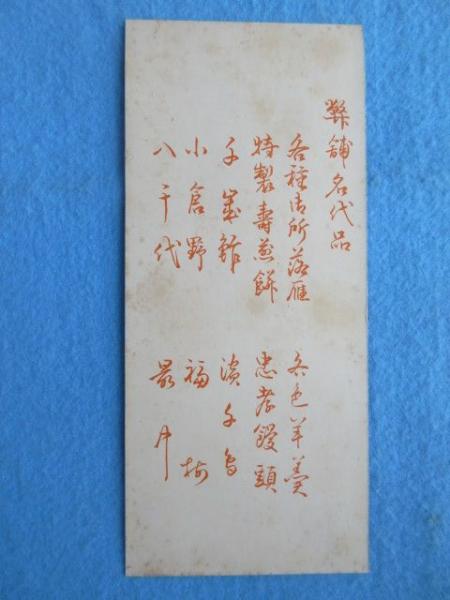 弊舗名代品
各種御所落雁　各色羊羹
特製壽煎餅　忠孝饅頭
千歳　濱千鳥
小倉野　福梅
八千代　最中